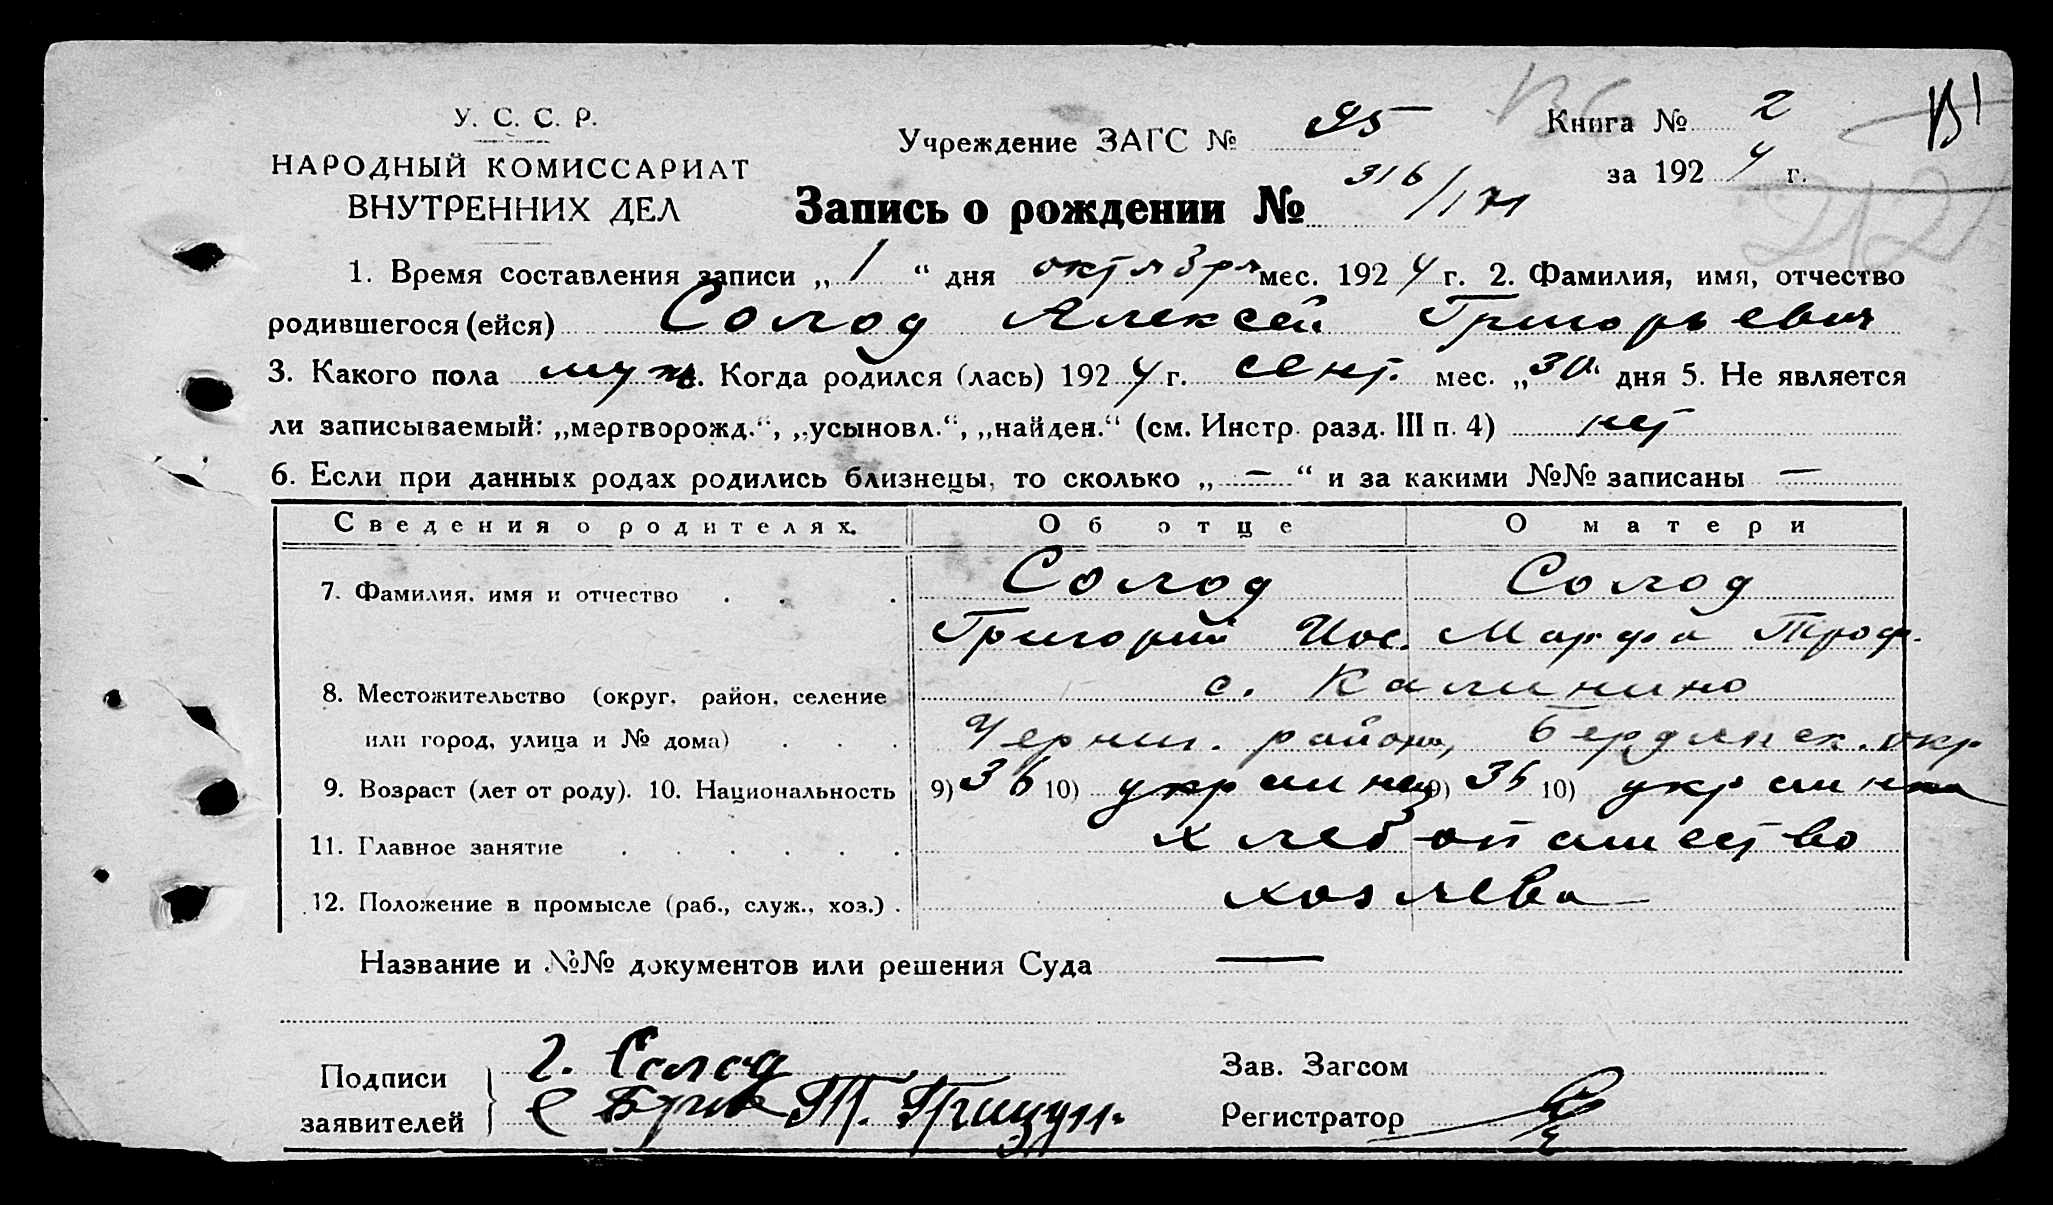 У. С. С. Р.
НАРОДНЫЙ КОМИССАРИАТ
ВНУТРЕННИХ ДЕЛ
Учреждение ЗАГС № 95
Книга № 2
за 1924 г.
212
Запись о рождении № 316/171
1. Время составления записи „1“ дня октября мес. 1924 г. 2. Фамилия, имя, отчество
родившегося (ейся) Солод Алексей Григорьевич
3. Какого пола муж. Когда родился (лась) 1924 г. сент. мес. „30“ дня 5. Не является
ли записываемый: „мертворожд.“, „усыновл.“, „найден.“ (см. Инстр. разд. III п. 4) нет
6. Если при данных родах родились близнецы, то сколько „—“ и за какими №№ записаны —
Сведения о родителях. Об отце О матери
7. Фамилия, имя и отчество Солод Солод
Григорий Иос. Марфа Троф.
8. Местожительство (округ, район, селение с. Калинино
или город, улица и № дома) Черниг. района, Бердянск. окр
9. Возраст (лет от роду). 10. Национальность 9) 36 10) украинец 9) 36 10) украинка
11. Главное занятие хлебопашество
12. Положение в промысле (раб., служ., хоз.) хозяева
Название и №№ документов или решения Суда —
Подписи
заявителей
Г. Солод
Т. Грицун.
Зав. Загсом
Регистратор